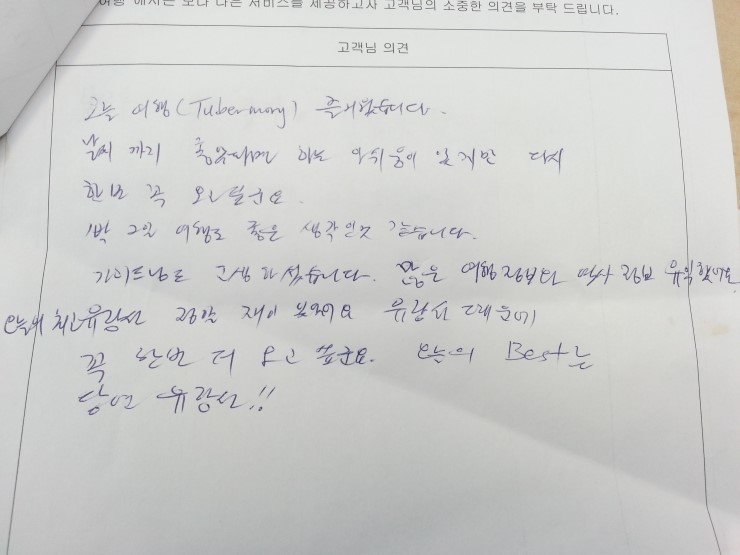 여행 에서는 보다 나은 서비스를 제공하고자 고객님의 소중한 의견을 부탁 드립니다.
고객님 의견
오늘 여행(Tubermory) 즐거웠습니다.
날씨 까지 좋았다면 하는 아쉬움이 있지만 다시
한번 꼭 오고 싶군요.
1박 2일 여행도 좋은 생각인것 같습니다.
가이드님도 고생하셨습니다. 많은 여행정보다 역사 정보 유익했어요.
오늘의 최고 유람선 정말 재미 있었어요 유람선 때문에
꼭 한번 더 오고 싶군요. 오늘의 Best는
당연 유람선!!